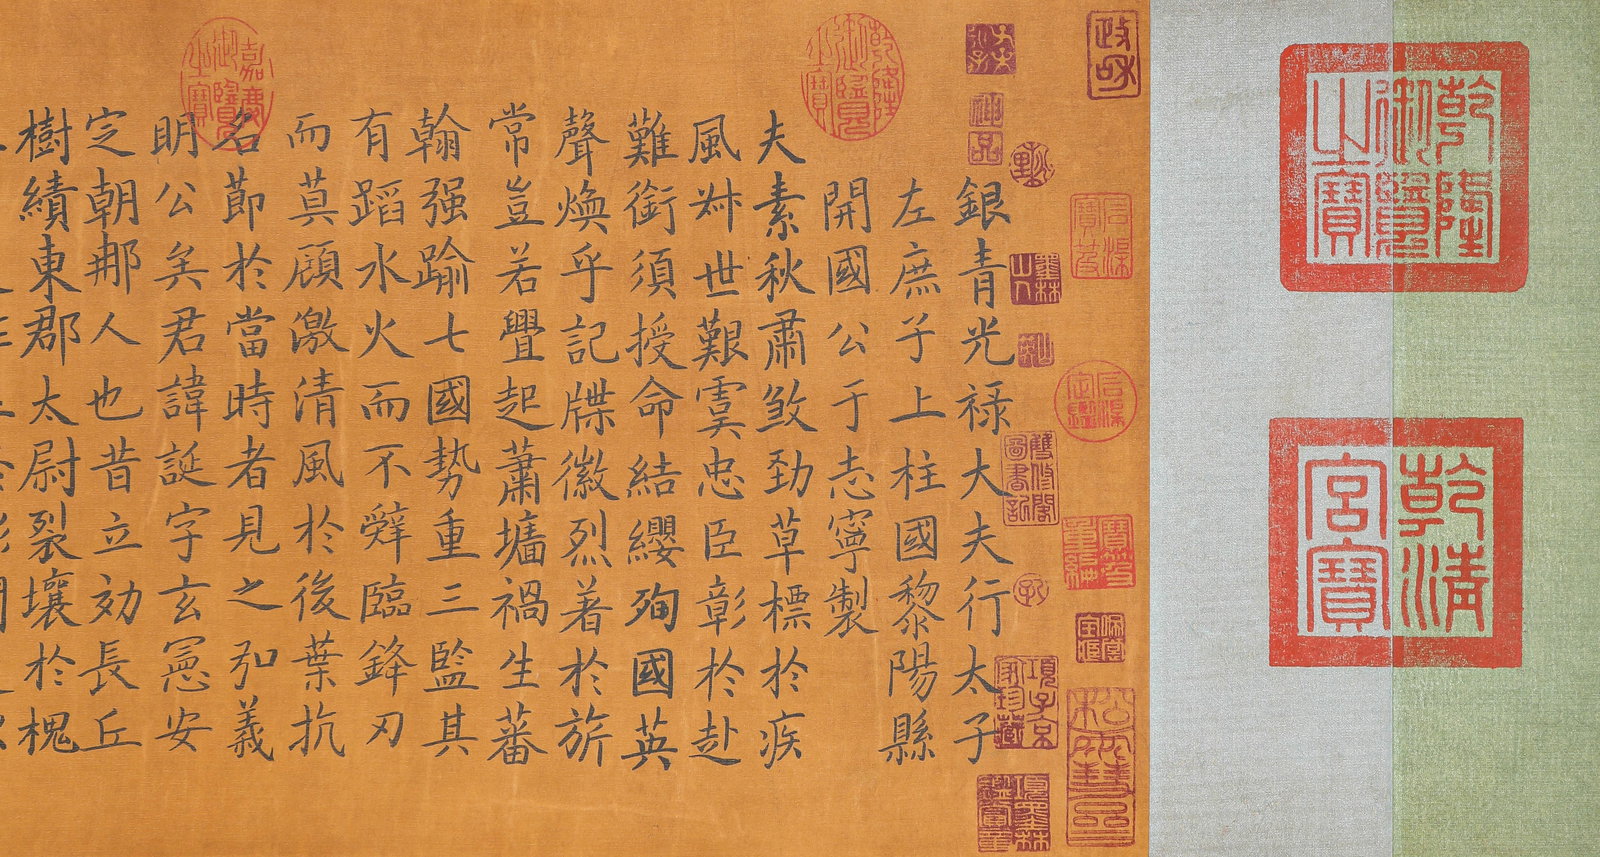 乾隆御覽之寶
乾清宮寶
政和
神品
乾隆御覽之寶
嘉慶御覽之寶
銀青光祿大夫行太子
左庶子上柱國黎陽縣
開國公于志寧製
夫素秋肅煞勁草標於疾
風叔世艱虞忠臣彰於赴
難銜須授命結纓殉國英
聲煥乎記牒徽烈著於旂
常豈若舋起蕭墻禍生蕃
翰强踰七國勢重三監其
有蹈水火而不辤臨鋒刃
而莫顧激清風於後葉抗
名節於當時者見之弘義
明公矣君諱誕字玄憲安
定朝那人也昔立効長丘
樹績東郡太尉裂壤於槐